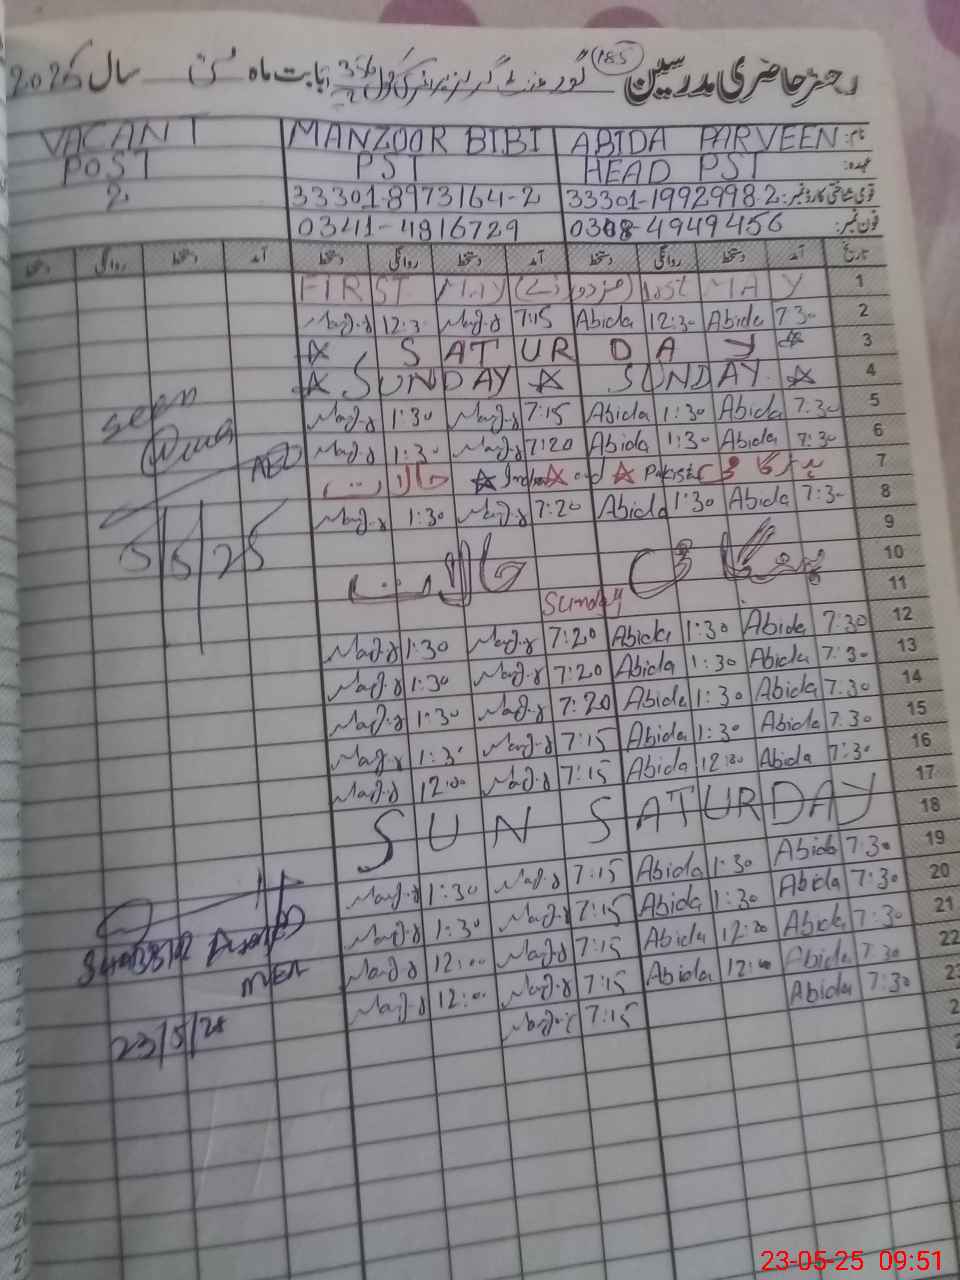 رجسٹر حاضری مدرسین 185 گورنمنٹ گرلز پرائمری سکول 356 بابت ماہ مئی سال 2025
نام: ABIDA PARVEEN MANZOOR BIBI VACANT
عہدہ: HEAD PST PST POST
قومی شناختی کارڈ نمبر: 33301-1992998-2 33301-8973164-2 2
فون نمبر: 0308-4949456 0341-4816729
تاریخ آمد دستخط روانگی دستخط آمد دستخط روانگی دستخط آمد دستخط روانگی دستخط
1 FIRST MAY first MAY
2 7:30 Abida 12:30 Abida 7:15 12:30
3 SATURDAY
4 SUNDAY SUNDAY
5 7:30 Abida 1:30 Abida 7:15 1:30
6 7:30 Abida 1:30 Abida 7:20 1:30
7 ہنگامی Pakistan and India حالات
8 7:30 Abida 1:30 Abida 7:20 1:30
9
10 ہنگامی حالات
11 Sunday
12 7:30 Abida 1:30 Abida 7:20 1:30
13 7:30 Abida 1:30 Abida 7:20 1:30
14 7:30 Abida 1:30 Abida 7:20 1:30
15 7:30 Abida 1:30 Abida 7:15 1:30
16 7:30 Abida 12:00 Abida 7:15 12:00
17 SATURDAY
18 SUN
19 7:30 Abida 1:30 Abida 7:15 1:30
20 7:30 Abida 1:30 Abida 7:15 1:30
21 7:30 Abida 12:00 Abida 7:15 12:00
22 7:30 Abida 12:00 Abida 7:15 12:00
23 7:30 Abida 7:15
seen
AEO
5/5/25
MEA
23/5/25
23-05-25 09:51